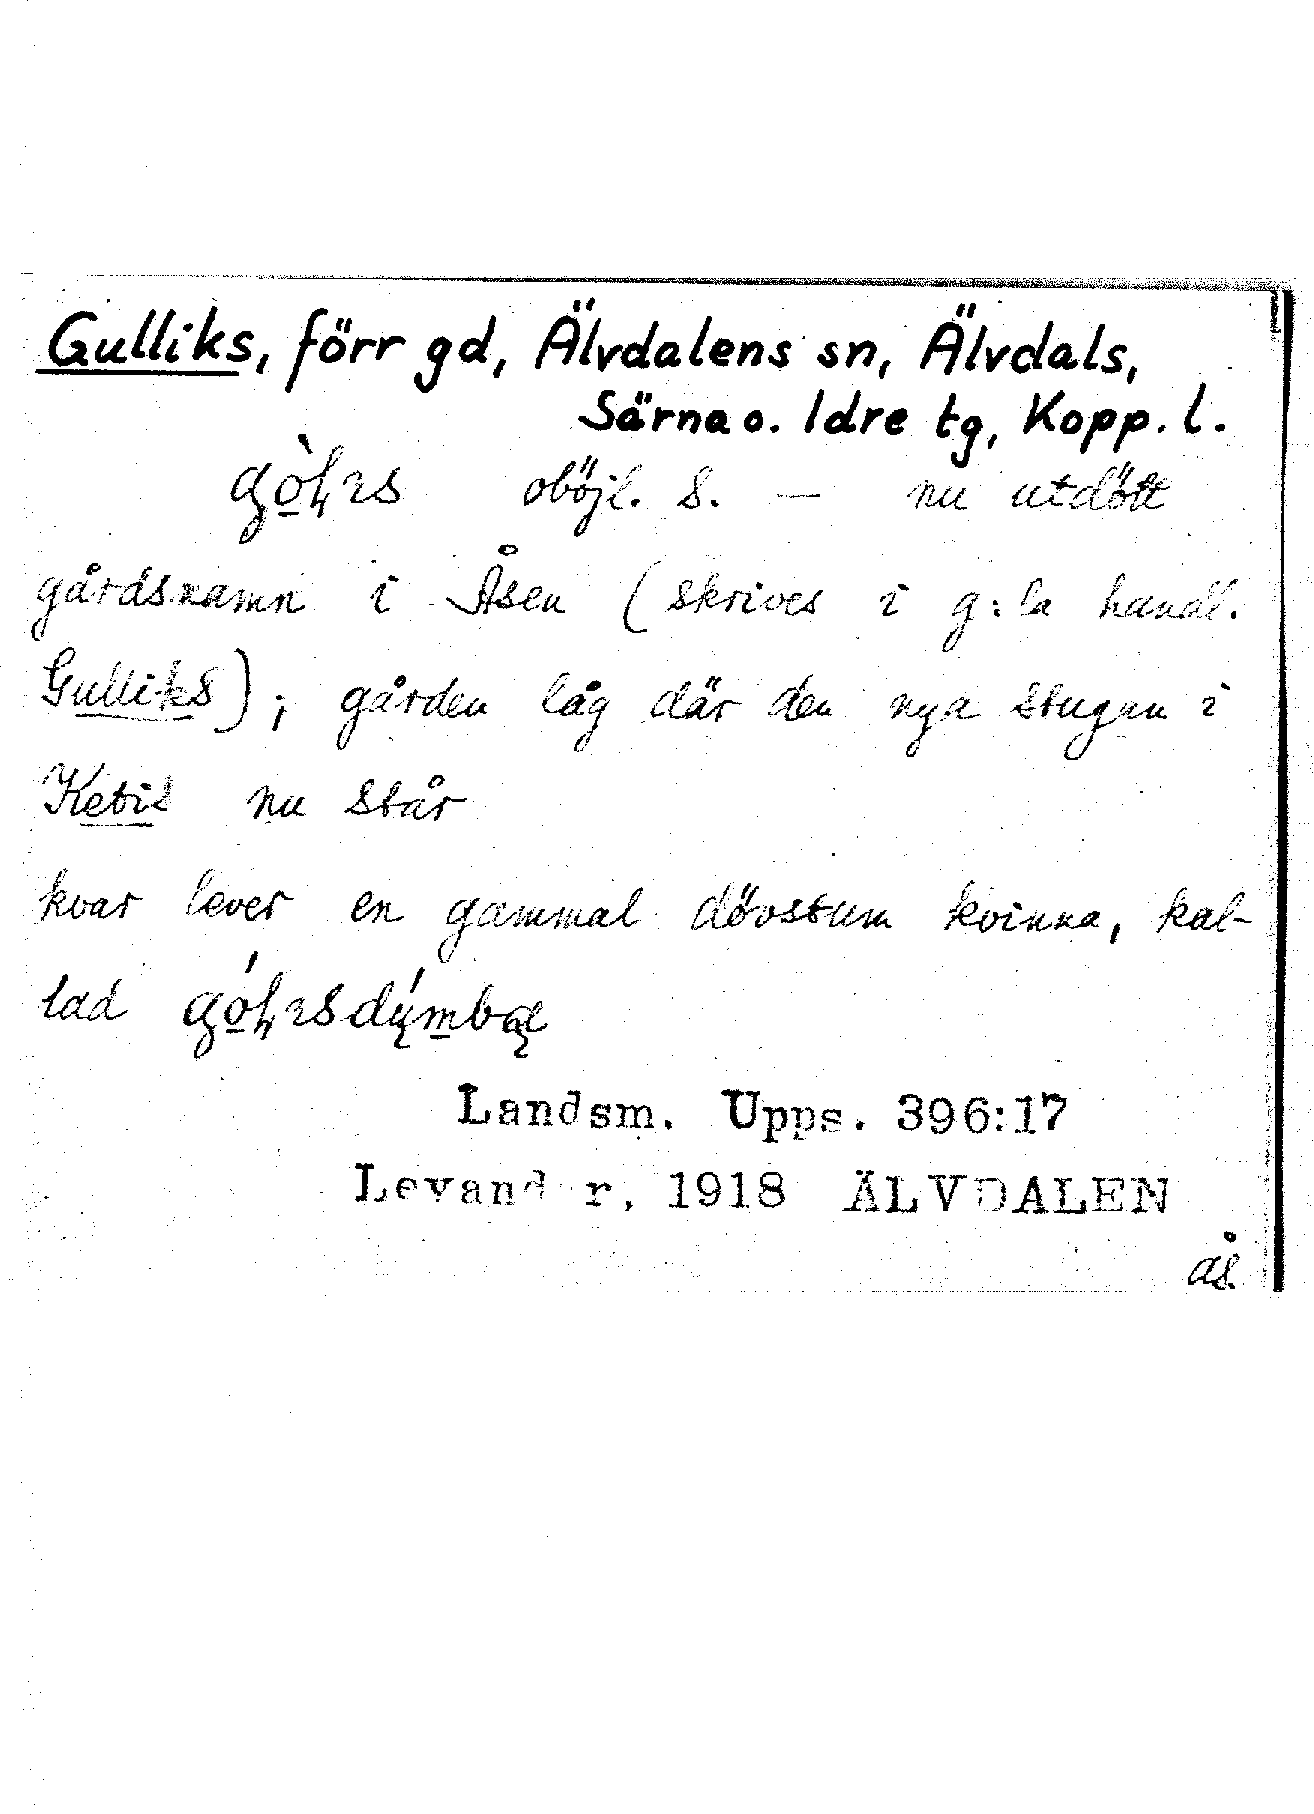 Gulliks, förr gd, Älvdalens sn, Älvdals,
Särna o. Idre tg, Kopp. l.
oböjl. s. — nu utdött
gårdsnamn i Åsen (skrives i g:la handl.
Gulliks); gården låg där den nya stugan i
nu står
kvar lever en gammal dövstum kvinna, kal-
lad
Landsm. Upps. 396:17
Levander, 1918 ÄLVDALEN
ås